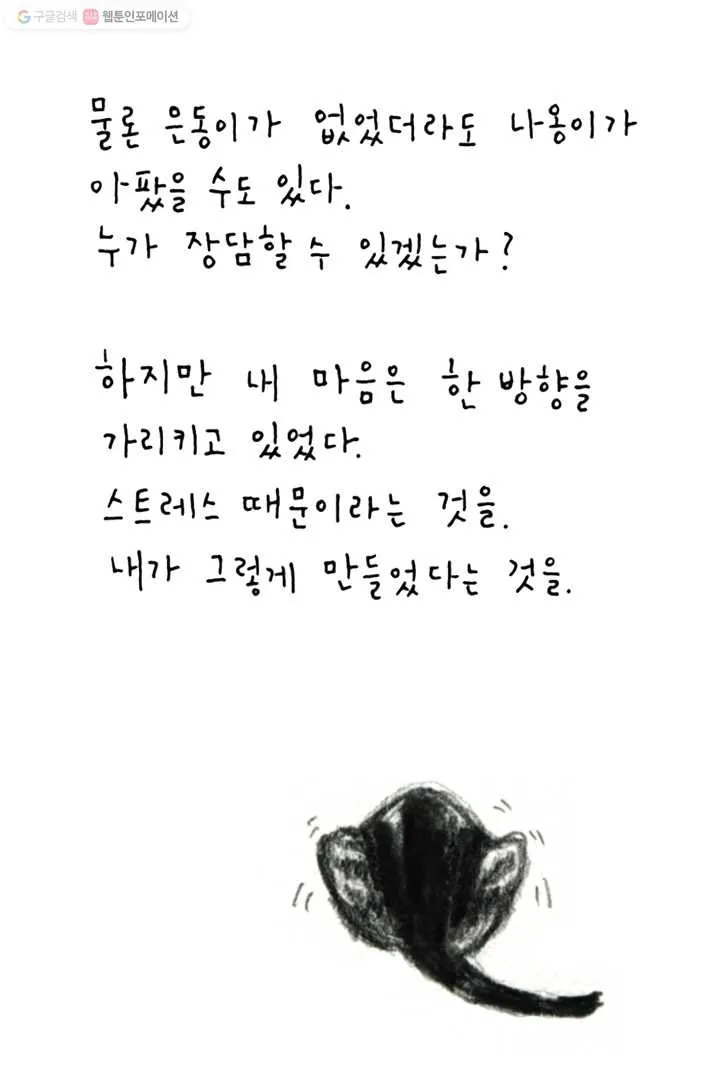 구글검색 웹툰인포메이션
물론 은동이가 없었더라도 나옹이가
아팠을 수도 있다.
누가 장담할 수 있겠는가?
하지만 내 마음은 한 방향을
가리키고 있었다.
스트레스 때문이라는 것을.
내가 그렇게 만들었다는 것을.